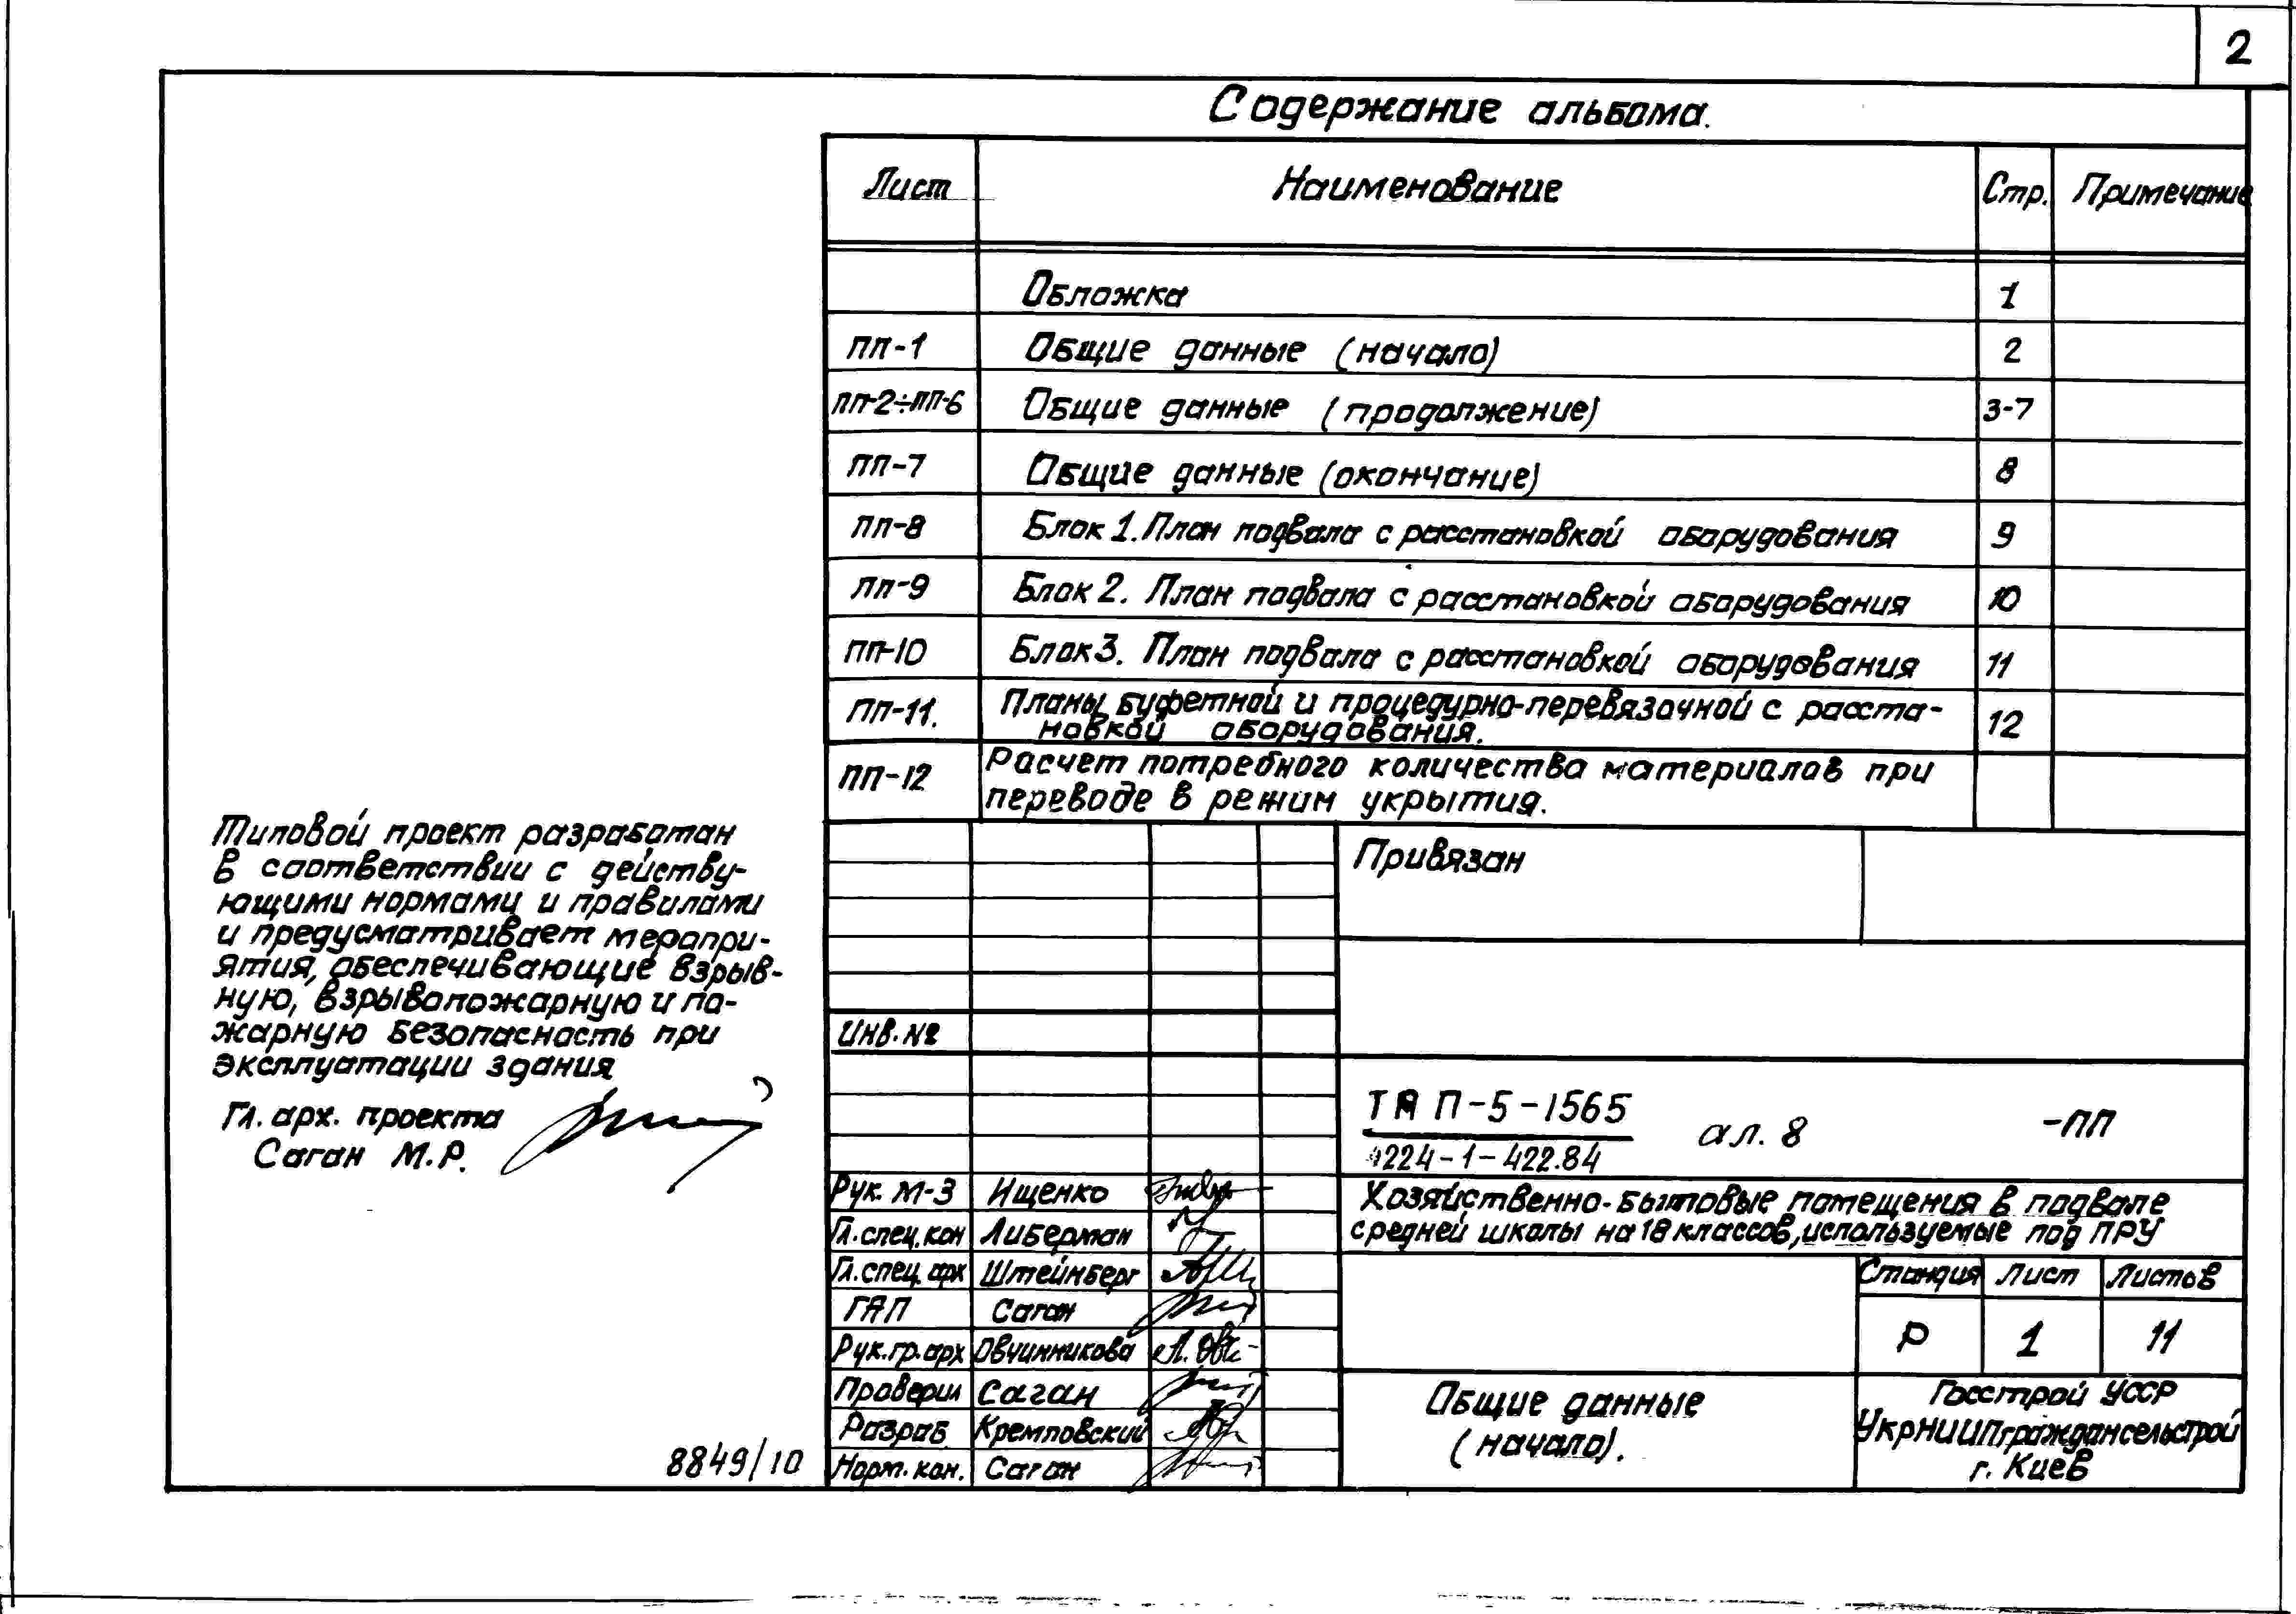 2
Содержание альбома.
Лист Наименование Стр. Примечание
Обложка 1
ПП-1 Общие данные (начало) 2
ПП-2÷ПП-6 Общие данные (продолжение) 3-7
ПП-7 Общие данные (окончание) 8
ПП-8 Блок 1. План подвала с расстановкой оборудования 9
ПП-9 Блок 2. План подвала с расстановкой оборудования 10
ПП-10 Блок 3. План подвала с расстановкой оборудования 11
ПП-11. Планы буфетной и процедурно-перевязочной с расста-
новкой оборудования. 12
ПП-12 Расчет потребного количества материалов при
переводе в режим укрытия.
Типовой проект разработан
в соответствии с действу-
ющими нормами и правилами
и предусматривает меропри-
ятия, обеспечивающие взрыв-
ную, взрывопожарную и по-
жарную безопасность при
эксплуатации здания
Гл. арх. проекта
Саган М.Р.
Привязан
Инв. №
П-5-1565
224-1-422.84
ал. 8
-ПП
Рук. М-3 Ищенко
Гл. спец. кон Либерман
Гл. спец. арх Штейнберг
ГАП Саган
Рук. гр. арх Овчинникова
Проверил Саган
Разраб Кремповский
Норм. кон. Саган
Хозяйственно-бытовые помещения в подвале
средней школы на 18 классов, используемые под ПРУ
Стандия Лист Листов
Р 1 11
Общие данные
(начало).
Госстрой УССР
УкрНИИПграждансельстрой
г. Киев
8849/10